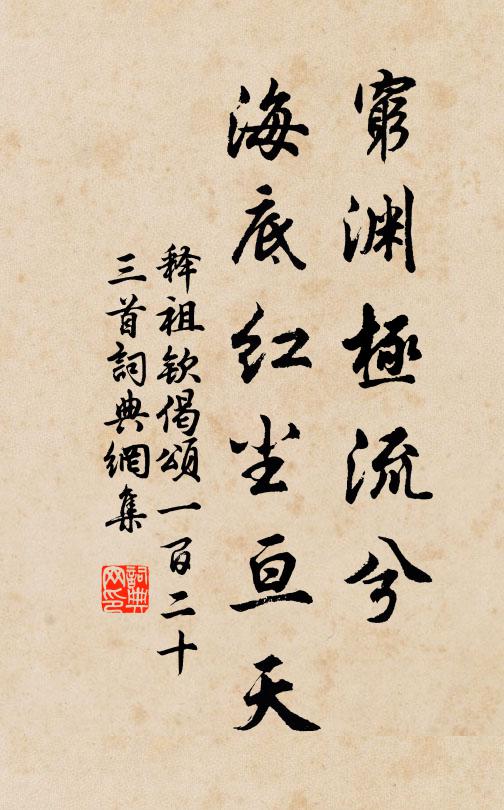 窮渊極流兮
海底红尘亘天
释祖钦偈頌一百二十
三首詞典網集
詞典
网印